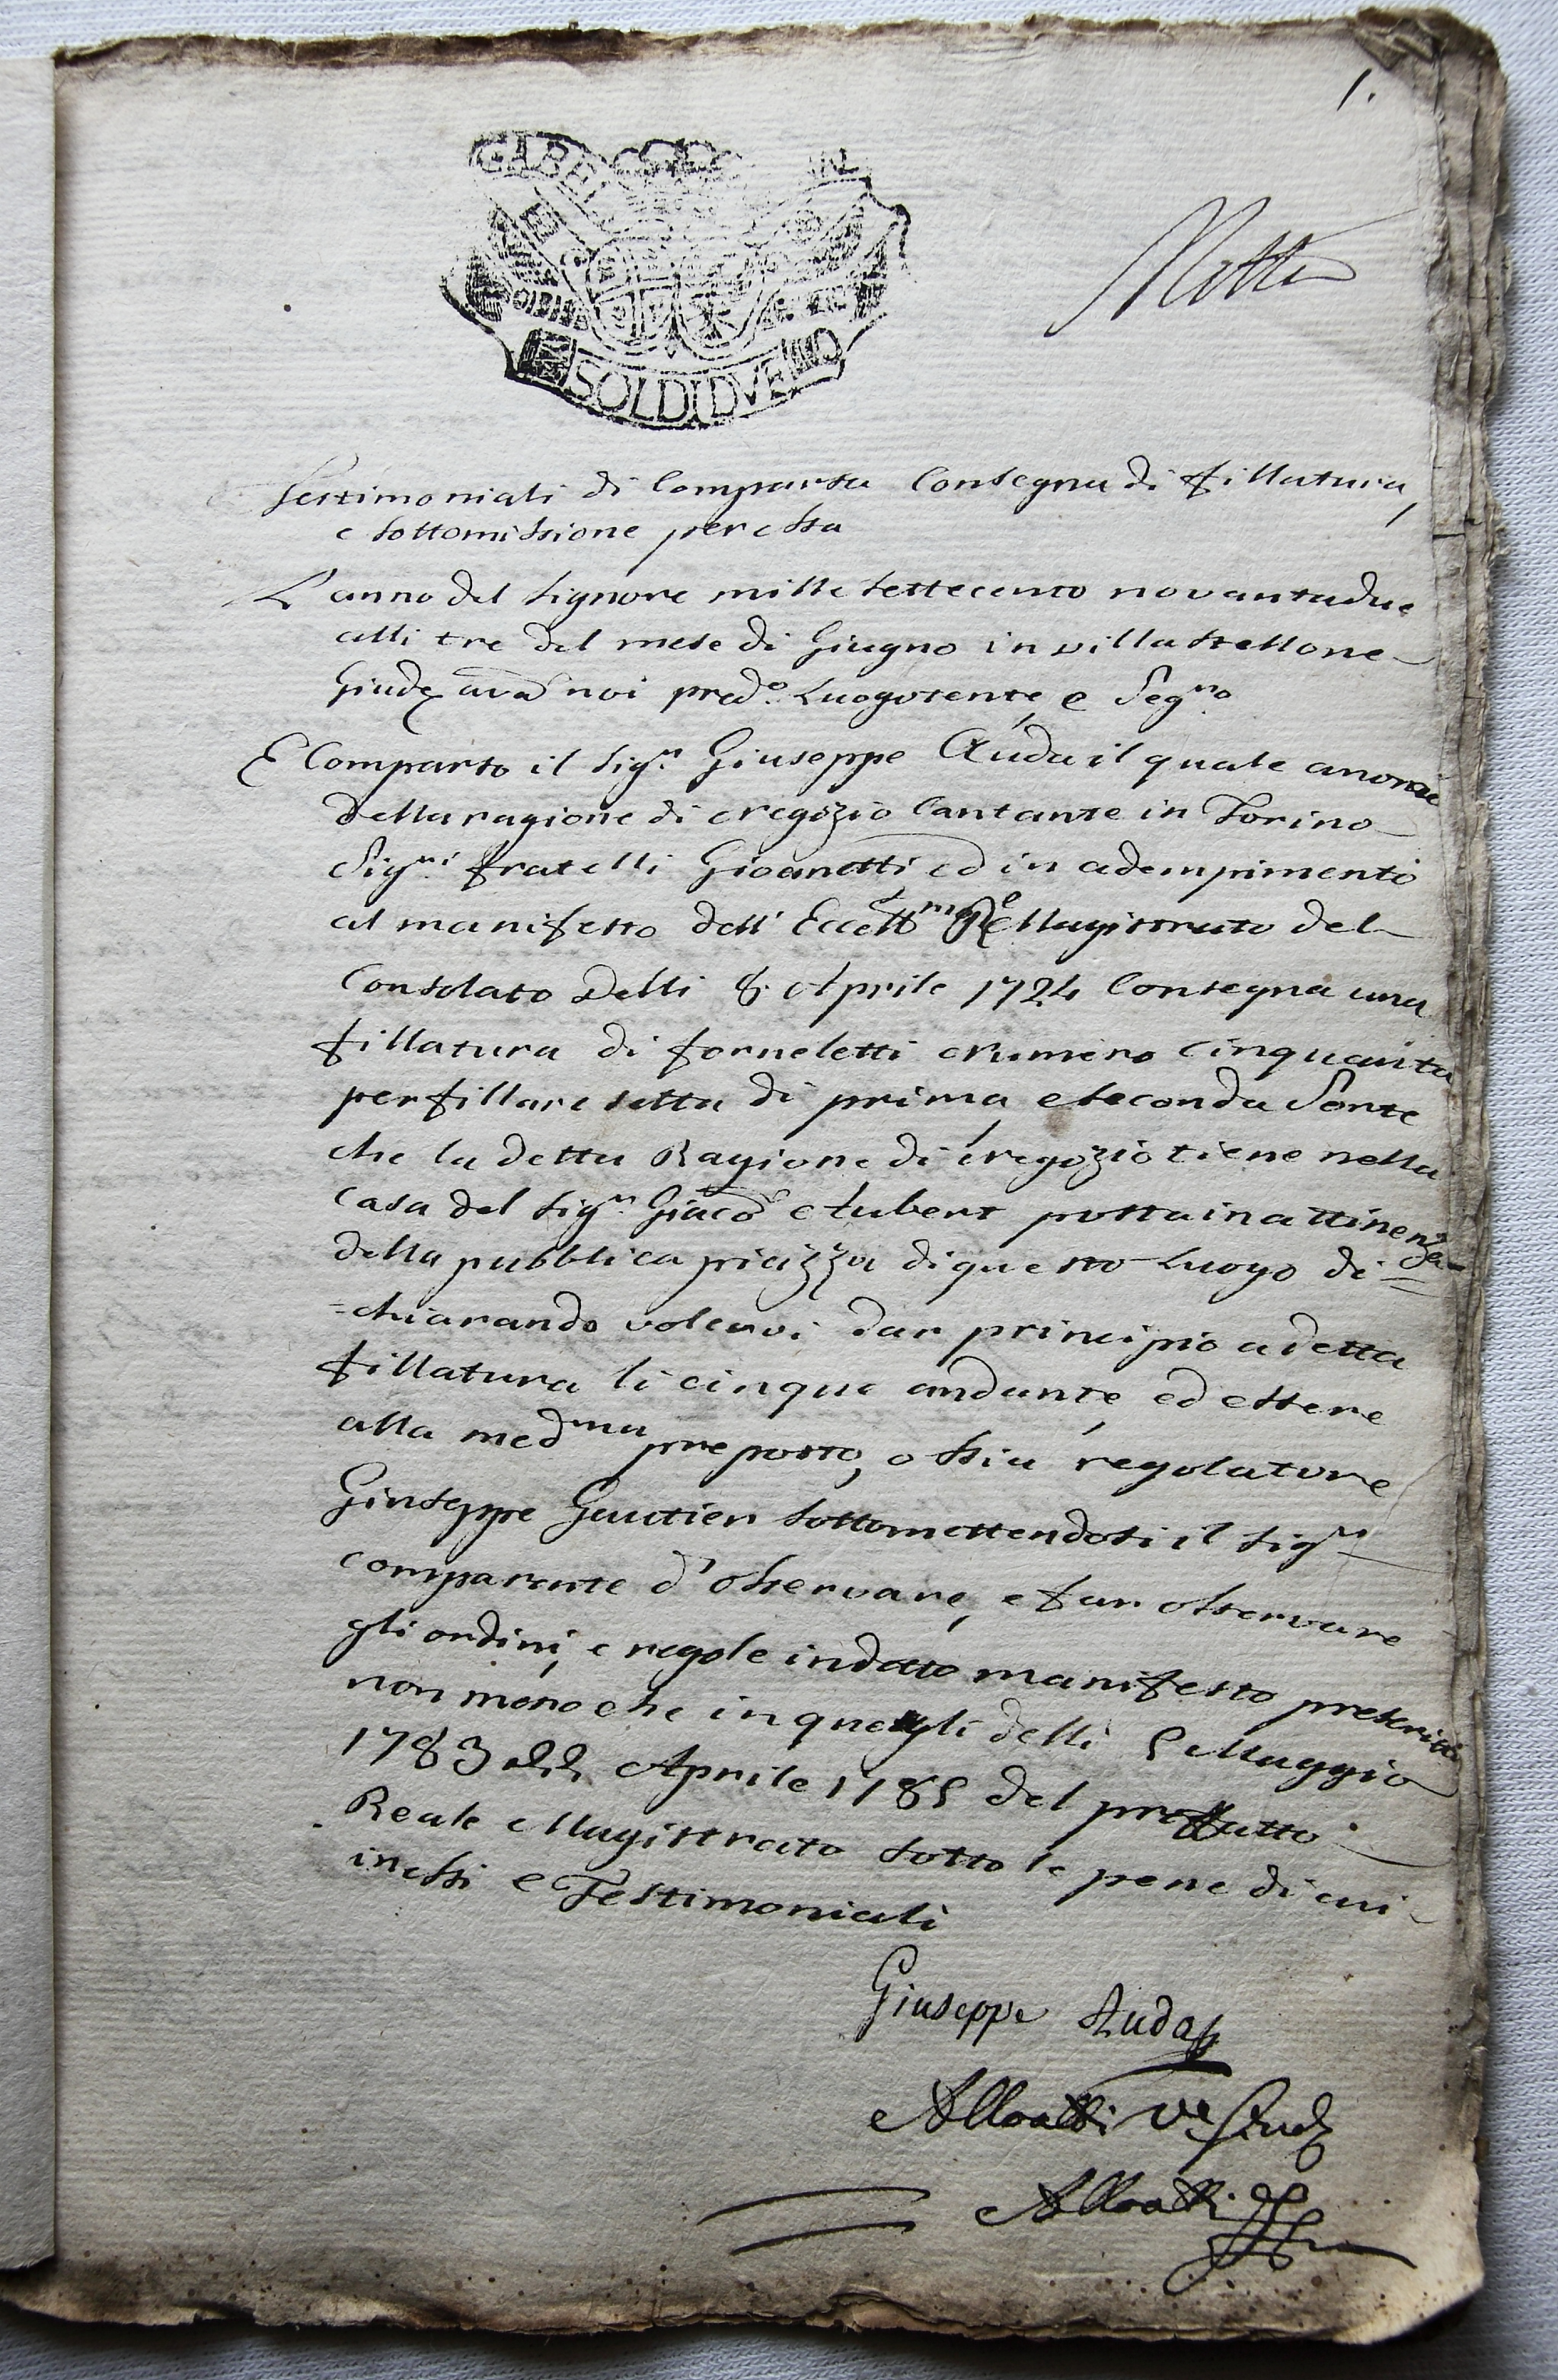 1.
GABE
SOLDI DVE
Testimoniali di Comparsa Consegna di fillatura,
e sottomissione per essa
L'anno del Signore mille settecento novantadue
alli tre del mese di Giugno in villastellone
Giud.e avti noi pred.o Luogotente, e Seg.ro
È Comparso il Sig.r Giuseppe Auda il quale a nome
della ragione di negozio Cantante in Torino
Sig.ri fratelli Gioanetti, ed in adempimento
al manifesto dell' Eccell.mo R.e Magistrato del
Consolato delli 8. Aprile 1724 Consegna una
fillatura di forneletti numero cinquanta
per fillare setta di prima, e seconda Sorte
che la detta Ragione di negozio tiene nella
Casa del Sig.r Giaco Aubert posta in attinenza
della pubblica piazza di questo Luogo di=
=chiarando volervi dar principio a detta
fillatura li cinque andante, ed essere
alla med.ma preposto, o ssia regolatore
Giuseppe Gautier sottomettendosi il Sig.r
comparente d'osservare, e far osservare
gli ordini, e regole in detto manifesto prescritti
non meno che in quegli delli 5 Maggio
1783 Aprile 1785 del preffatto
Reale Magistrato sotto le pene di cui
in essi e Testimoniali
Giuseppe Auda
Alloatti V.e Giud.e
Alloatti